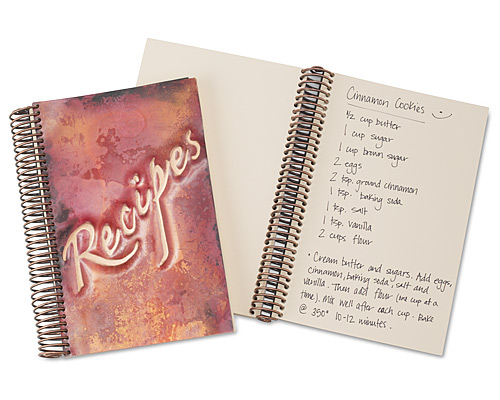 Recipes
Cinnamon Cookies
½ cup butter
1 cup sugar
1 cup brown sugar
2 eggs
2 tsp. ground cinnamon
1 tsp. baking soda
1 tsp. salt
1 tsp. vanilla
2 cups flour
• Cream butter and sugars. Add eggs,
cinnamon, baking soda, salt and
vanilla. Then add flour (one cup at a
time). Mix well after each cup. Bake
@ 350° 10-12 minutes.